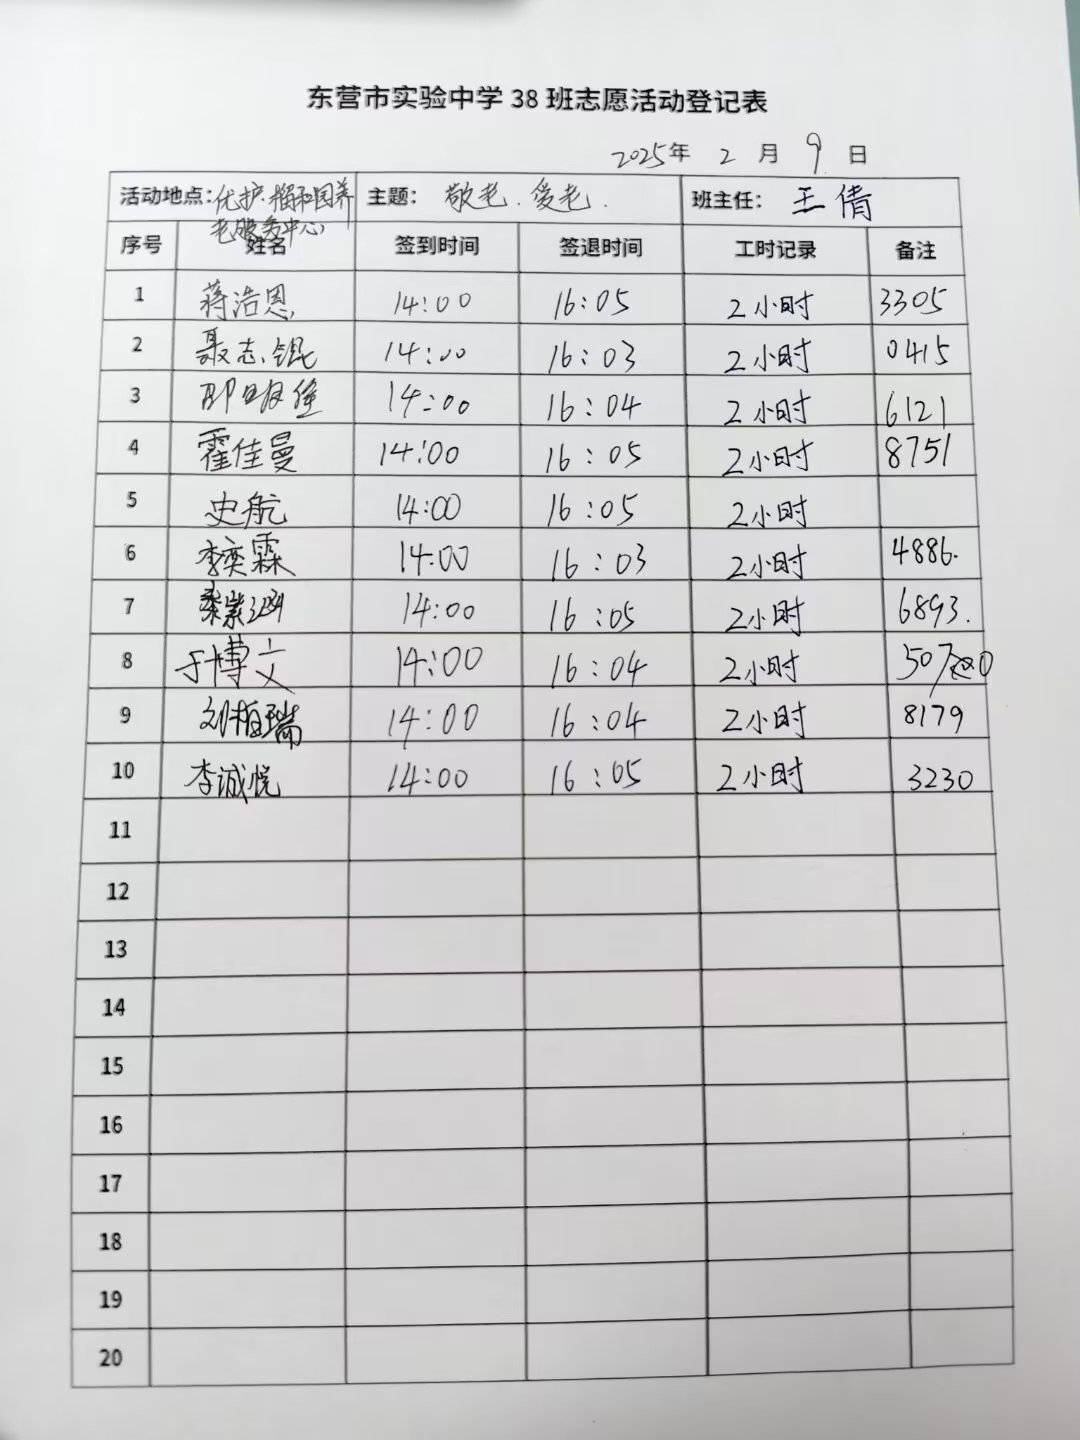 东营市实验中学 38 班志愿活动登记表
2025年 2 月 9 日
活动地点:优护·福和园养老服务中心 主题: 敬老.爱老. 班主任: 王倩
序号 姓名 签到时间 签退时间 工时记录 备注
1 蒋浩恩 14:00 16:05 2小时 3305
2 聂志锟 14:00 16:03 2小时 0415
3 14:00 16:04 2小时 6121
4 霍佳曼 14:00 16:05 2小时 8751
5 史航 14:00 16:05 2小时
6 李奕霖 14:00 16:03 2小时 4886.
7 14:00 16:05 2小时 6893.
8 于博文 14:00 16:04 2小时
9 刘柏瑞 14:00 16:04 2小时 8179
10 李诚悦 14:00 16:05 2小时 3230
11
12
13
14
15
16
17
18
19
20